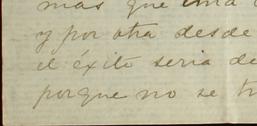 mas que una
y por otra desde
el éxito seria de
porque no se tr